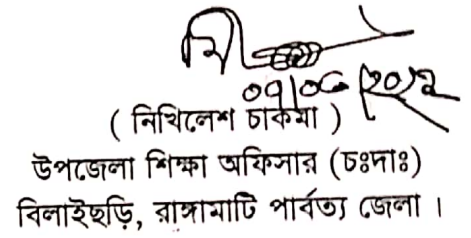 ০৭/০৮/২০১২
( নিখিলেশ চাকমা )
উপজেলা শিক্ষা অফিসার (চঃদাঃ)
বিলাইছড়ি, রাঙ্গামাটি পার্বত্য জেলা ।